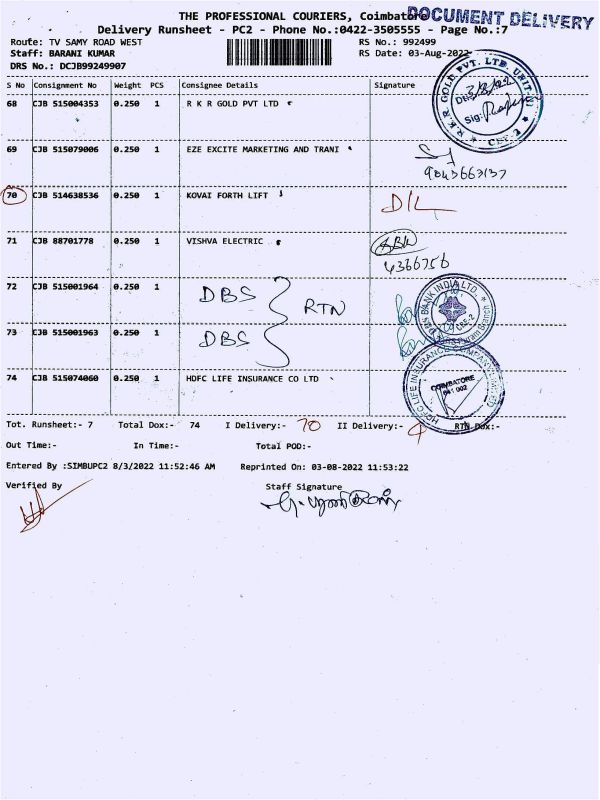 THE PROFESSIONAL COURIERS, Coimbatore
DOCUMENT DELIVERY
Delivery Runsheet - PC2 - Phone No.:0422-3505555 - Page No.:7
Route: TV SAMY ROAD WEST RS No.: 992499
Staff: BARANI KUMAR RS Date: 03-Aug-2022
DRS No.: DCJB99249907
S No Consignment No Weight PCS Consignee Details Signature
68 CJB 515004353 0.250 1 R K R GOLD PVT LTD
R.K.R. GOLD PVT. LTD. UNIT-
3/8/22
Sig:
CBE-2
69 CJB 515079006 0.250 1 EZE EXCITE MARKETING AND TRANI
9843663137
70 CJB 514638536 0.250 1 KOVAI FORTH LIFT D/L
71 CJB 88701778 0.250 1 VISHVA ELECTRIC
4366756
72 CJB 515001964 0.250 1 DBS RTN
BANK INDIA LTD.
CBE-2
73 CJB 515001963 0.250 1 DBS
74 CJB 515074060 0.250 1 HDFC LIFE INSURANCE CO LTD
HDFC LIFE INSURANCE COMPANY LIMITED
COIMBATORE
641 002
Tot. Runsheet:- 7 Total Dox:- 74 I Delivery:- 70 II Delivery:- 4 RTN Dox:-
Out Time:- In Time:- Total POD:-
Entered By :SIMBUPC2 8/3/2022 11:52:46 AM Reprinted On: 03-08-2022 11:53:22
Verified By Staff Signature